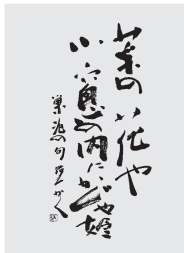 菜の花や
小窓の内にかぐや姫
巣兆の句 かく